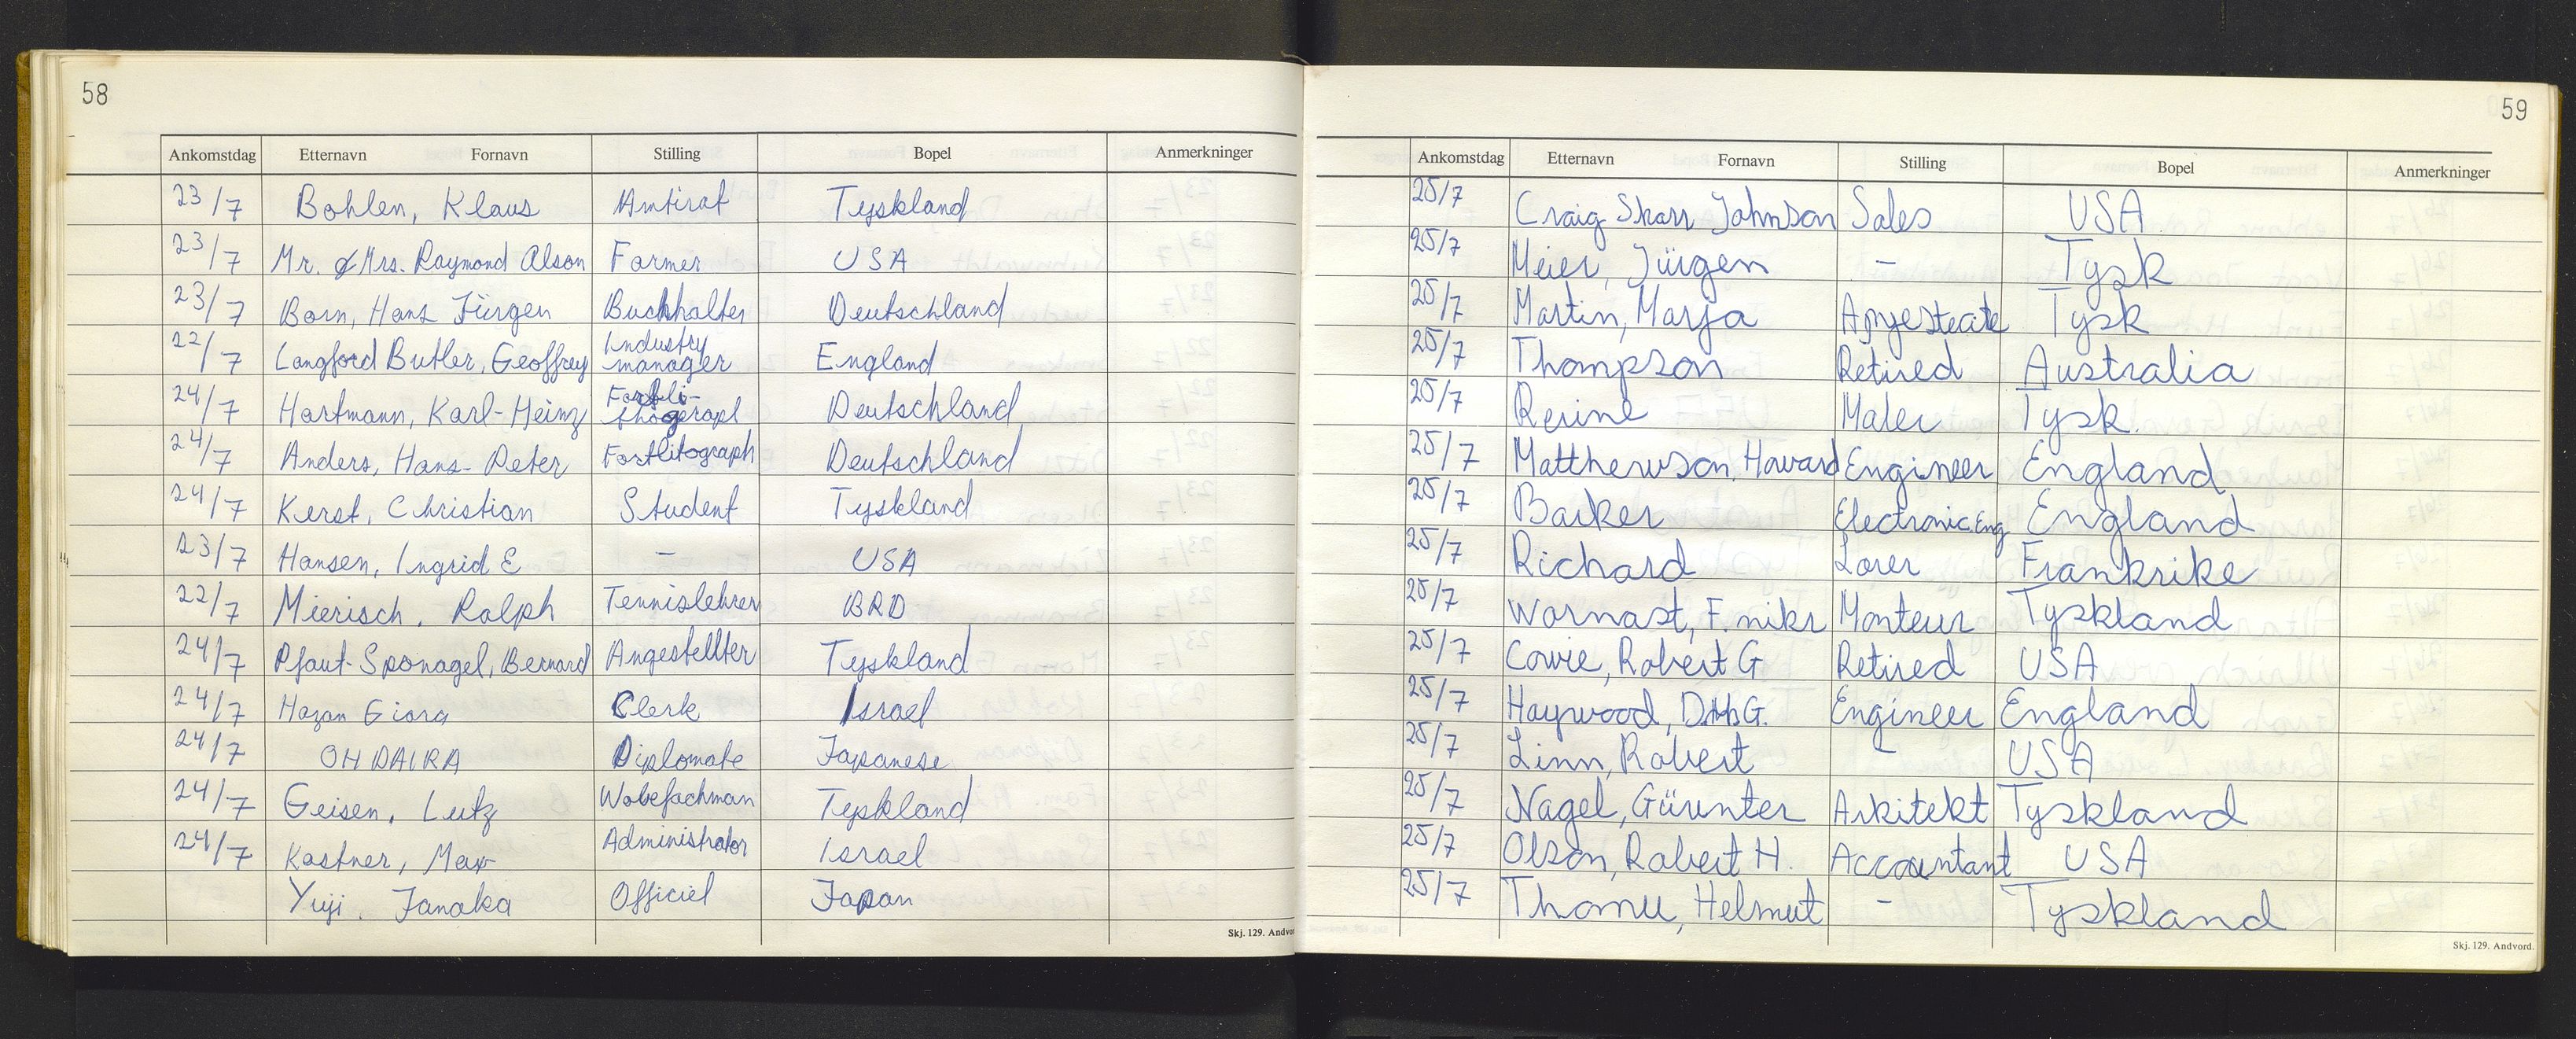 58
Ankomstdag Etternavn Fornavn Stilling Bopel Anmerkninger
23/7 Bohlen, Klaus Amtirat Tyskland
23/7 Mr. & Mrs. Raymond Olson Farmer USA
23/7 Born, Hans Jürgen Buchhalter Deutschland
22/7 Langford Butler, Geoffrey Industry manager England
24/7 Hartmann, Karl-Heinz Deutschland
24/7 Anders, Hans-Peter Fortlitograph Deutschland
24/7 Kerst, Christian Student Tyskland
23/7 Hansen, Ingrid E - USA
22/7 Mierisch, Ralph Tennislehrer BRD
24/7 Pfaut-Sponagel, Bernard Angestellter Tyskland
24/7 Hazan Giora Clerk Israel
24/7 OHDAIRA Diplomate Japanese
24/7 Geisen, Lutz Wobefachman Tyskland
24/7 Kastner, Max Administrator Israel
Yuji. Tanaka Officiel Japan
Skj. 129. Andvor
59
Ankomstdag Etternavn Fornavn Stilling Bopel Anmerkninger
25/7 Craig Skarr Johnson Sales USA
25/7 Meier, Jürgen - Tysk
25/7 Martin, Marja Tysk
25/7 Thompson Retired Australia
25/7 Reine Maler Tysk.
25/7 Matthewson, Howard Engineer England
25/7 Barker Electronic.Eng England
25/7 Richard Lärer Frankrike
25/7 Warnast, F. Monteur Tyskland
25/7 Cowie, Robert G Retired USA
25/7 Haywood, G. Engineer England
25/7 Linn, Robert - USA
25/7 Nagel, Günter Arkitekt Tyskland
25/7 Olson, Robert H. Accountant USA
25/7 Helmut - Tyskland
Skj. 129. Andvord.